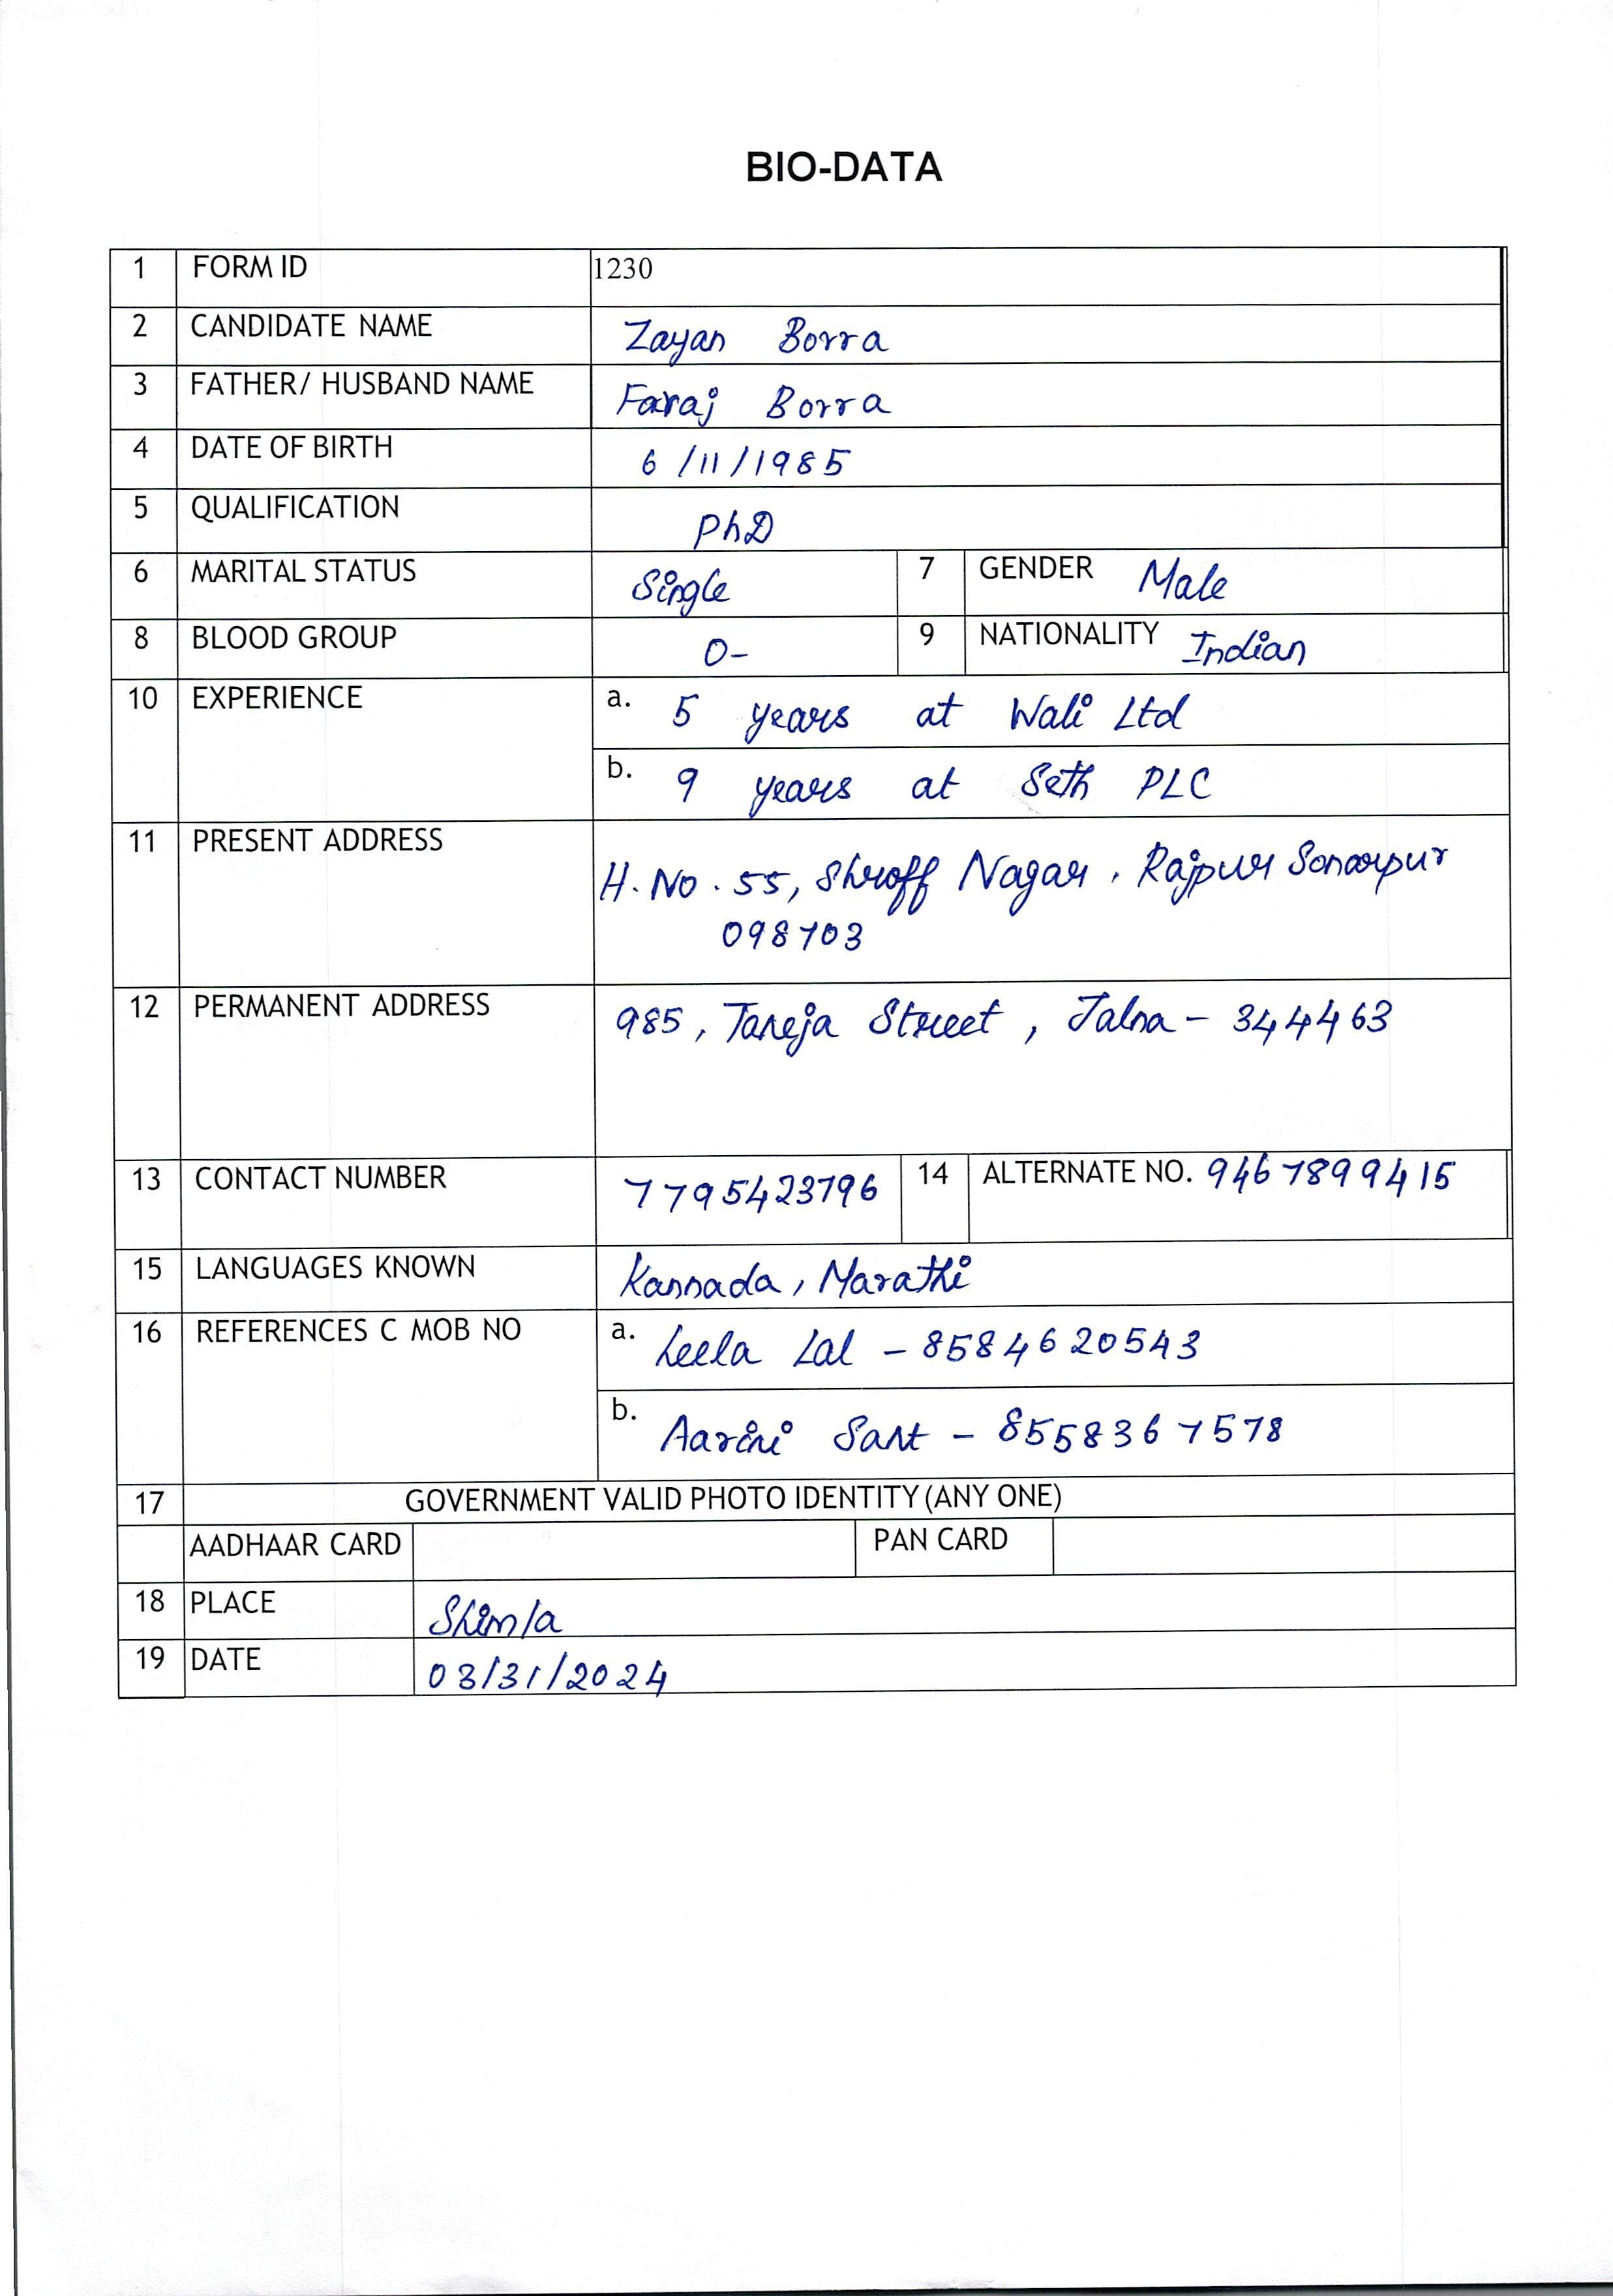 BIO-DATA
1 FORM ID 1230
2 CANDIDATE NAME Zayan Borra
3 FATHER/ HUSBAND NAME Faraj Borra
4 DATE OF BIRTH 6/11/1985
5 QUALIFICATION PhD
6 MARITAL STATUS Single 7 GENDER Male
8 BLOOD GROUP O- 9 NATIONALITY Indian
10 EXPERIENCE a. 5 years at Wali Ltd
b. 9 years at Seth PLC
11 PRESENT ADDRESS H.No.55, Shroff Nagar, Rajpur Sonarpur
098703
12 PERMANENT ADDRESS 985, Taneja Street, Jalna - 344463
13 CONTACT NUMBER 7795423796 14 ALTERNATE NO. 9467899415
15 LANGUAGES KNOWN Kannada, Marathi
16 REFERENCES C MOB NO a. Leela Lal - 8584620543
b. Aarini Sant - 8558367578
17 GOVERNMENT VALID PHOTO IDENTITY (ANY ONE)
AADHAAR CARD PAN CARD
18 PLACE Shimla
19 DATE 03/31/2024